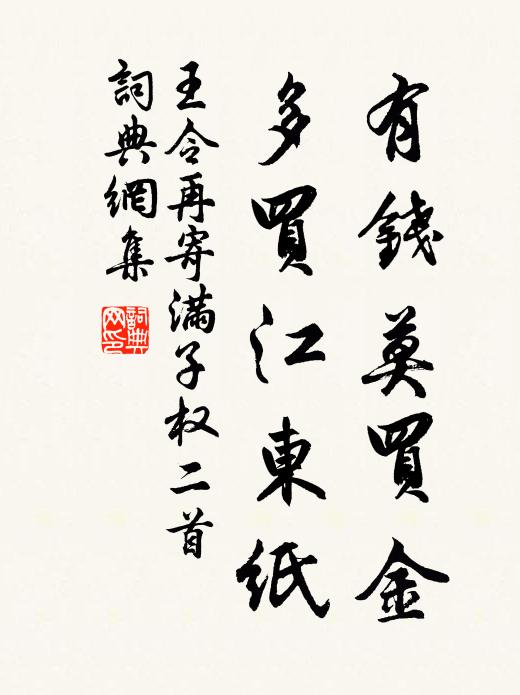 有錢莫買金
多買江東紙
王令再寄滿子权二首
詞典網集
詞典网印